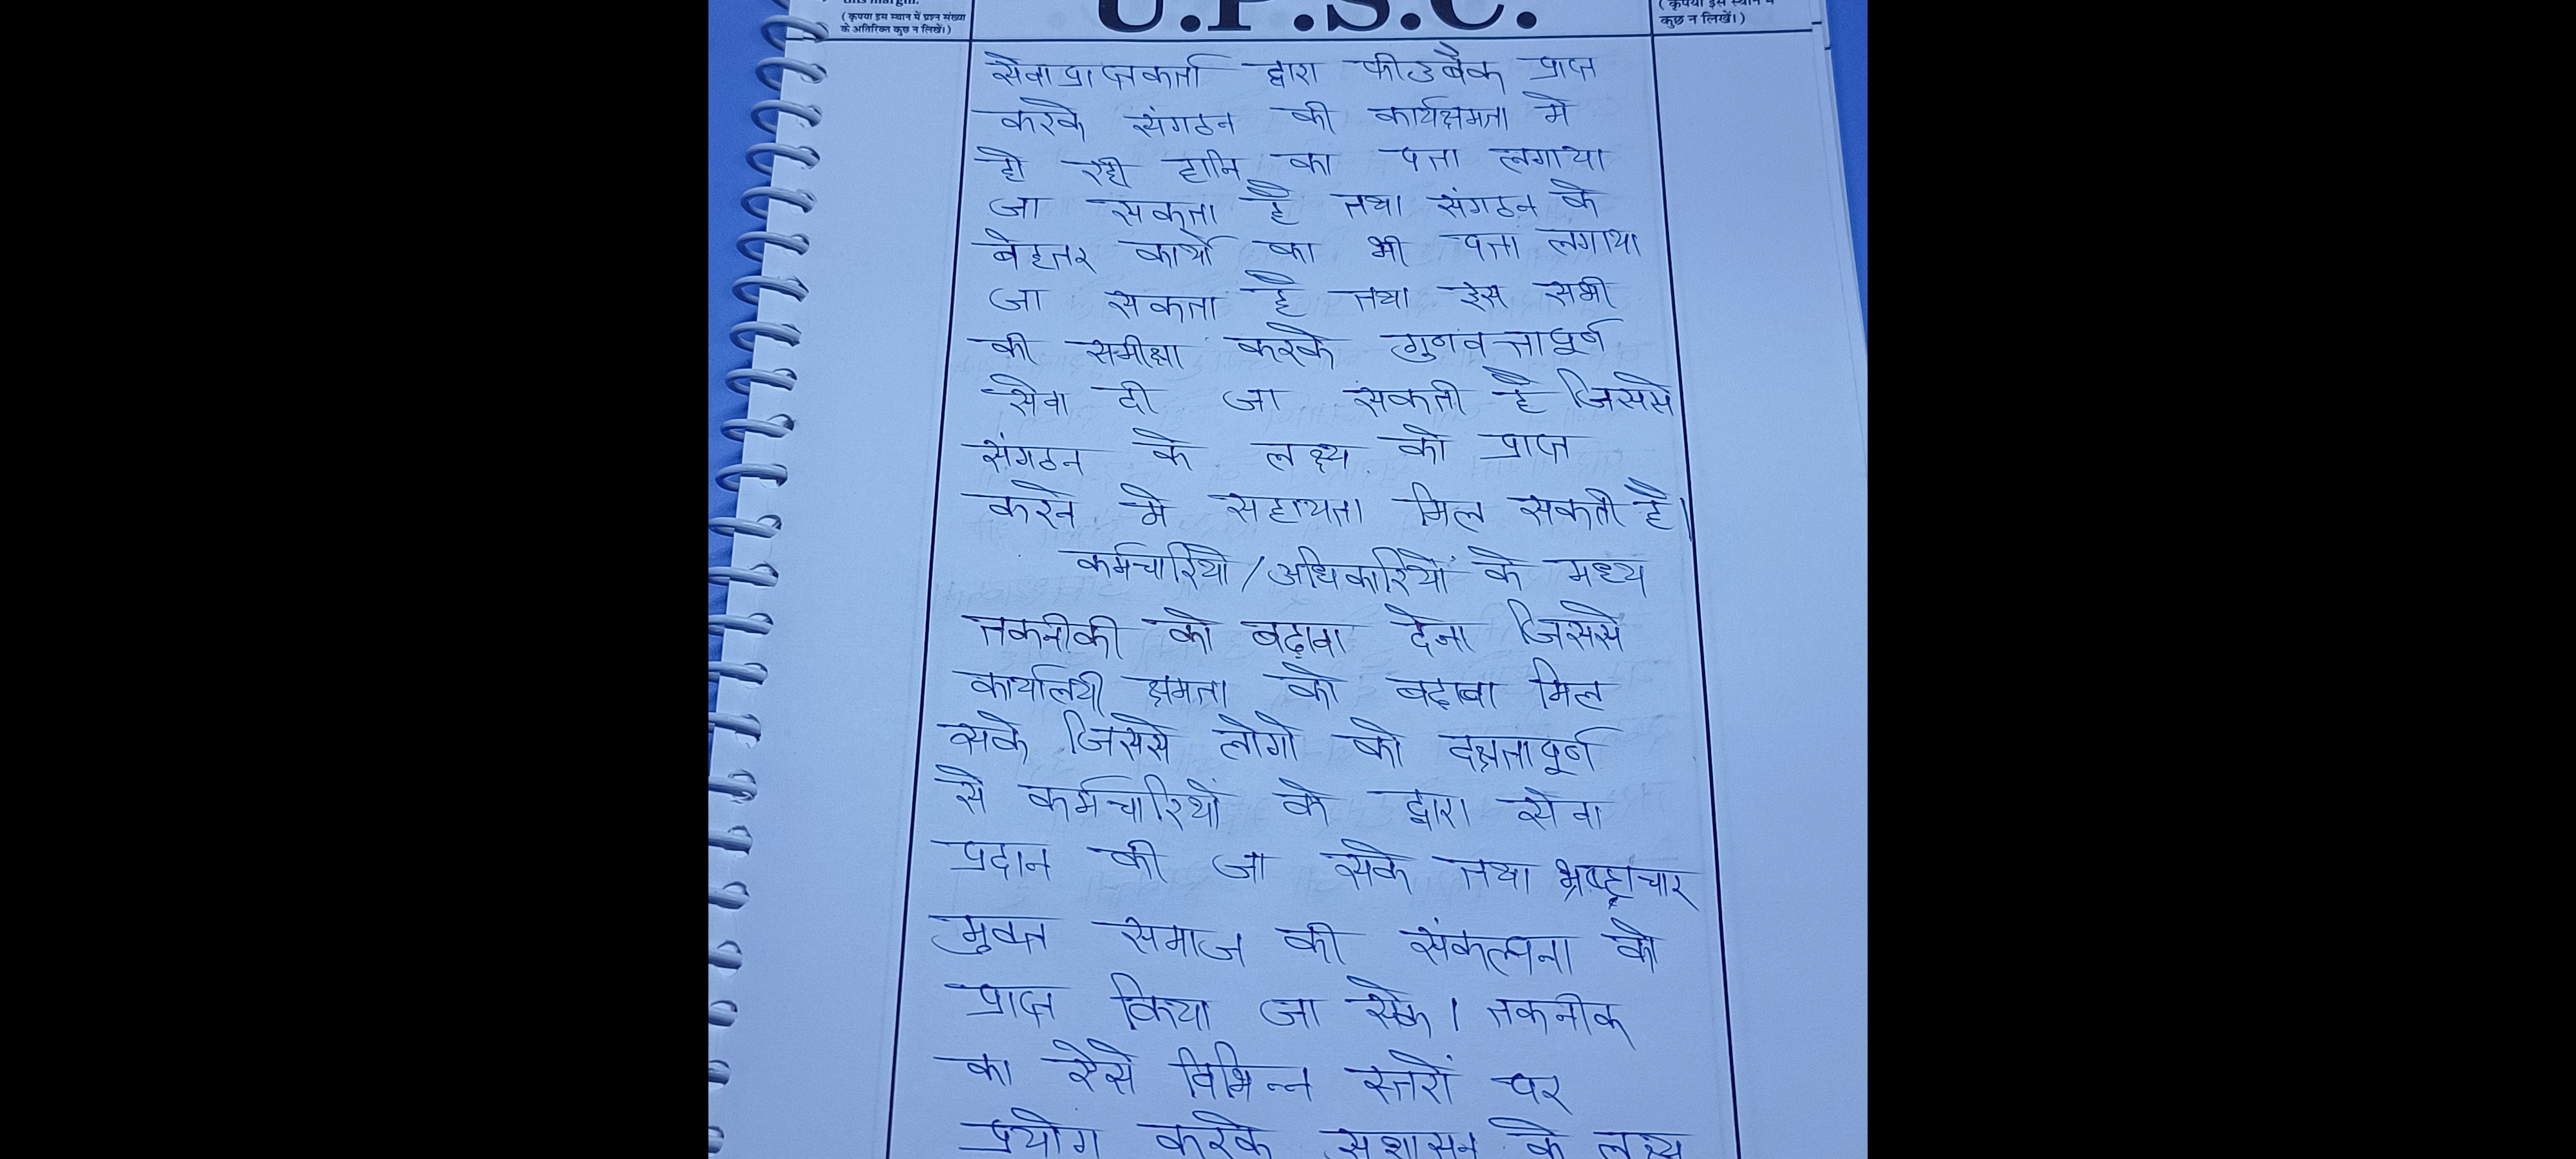 this margin.
(कृपया इस स्थान में प्रश्न संख्या
के अतिरिक्त कुछ न लिखें।)
U.P.S.C.
(कृपया इस स्थान में
कुछ न लिखें।)
सेवाप्राप्तकर्ता द्वारा फीडबैक प्राप्त
करके संगठन की कार्यक्षमता मे
हो रही हानि का पता लगाया
जा सकता है तथा संगठन के
बेहतर कार्यो का भी पता लगाया
जा सकता है तथा इस सभी
की समीक्षा करके गुणवत्तापूर्ण
सेवा दी जा सकती है जिससे
संगठन के लक्ष्य को प्राप्त
करने मे सहायता मिल सकती है।
कर्मचारियो/अधिकारियों के मध्य
तकनीकी को बढ़ावा देना जिससे
कार्यालयी क्षमता को बढ़ावा मिल
सके जिससे लोगो को दक्षतापूर्ण
से कर्मचारियों के द्वारा सेवा
प्रदान की जा सके तथा भ्रष्ट्राचार
मुक्त समाज की संकल्पना को
प्राप्त किया जा सके। तकनीक
का ऐसे विभिन्न स्तरों पर
प्रयोग करके सुशासन के लक्ष्य